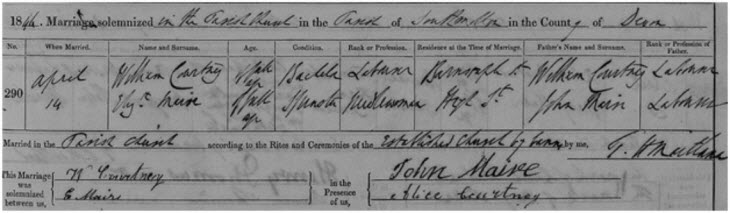 1844. Marriage solemnized in the Parish Church in the Parish of Southmolton in the County of Devon
No. When Married. Name and Surname. Age. Condition. Rank or Profession. Residence at the Time of Marriage. Father's Name and Surname. Rank or Profession of Father.
April William Courtney Full age Bachelor Labourer William Courtney Labourer
290
14 Elizh. Maire Full age Spinster Needlewoman St John Maire Labourer
Married in the Parish Church according to the Rites and Ceremonies of the Established Church by banns by me,
This Marriage was solemnized between us, W Courtney in the Presence of us, John Maire
E Maire Alice Courtney